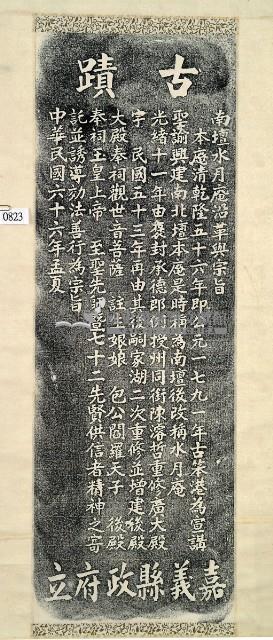 古蹟
南壇水月庵沿革與宗旨
本庵清乾隆五十六年即公元一七九一年古笨港為宣講
聖諭興建南北壇本庵是時稱為南壇後改稱水月庵
光緒十一年由褒封承德郎例授州同銜陳濬哲重修廣大殿
宇民國五十三年再由其後嗣家湖二次重修並增建後殿
大殿奉祠觀世音菩薩 註生娘娘 包公閻羅天子 後殿
奉祠玉皇上帝 至聖先師暨七十二先賢供信者精神之寄
託並誘導勸法善行為宗旨
中華民國六十六年孟夏
嘉義縣政府立
0823